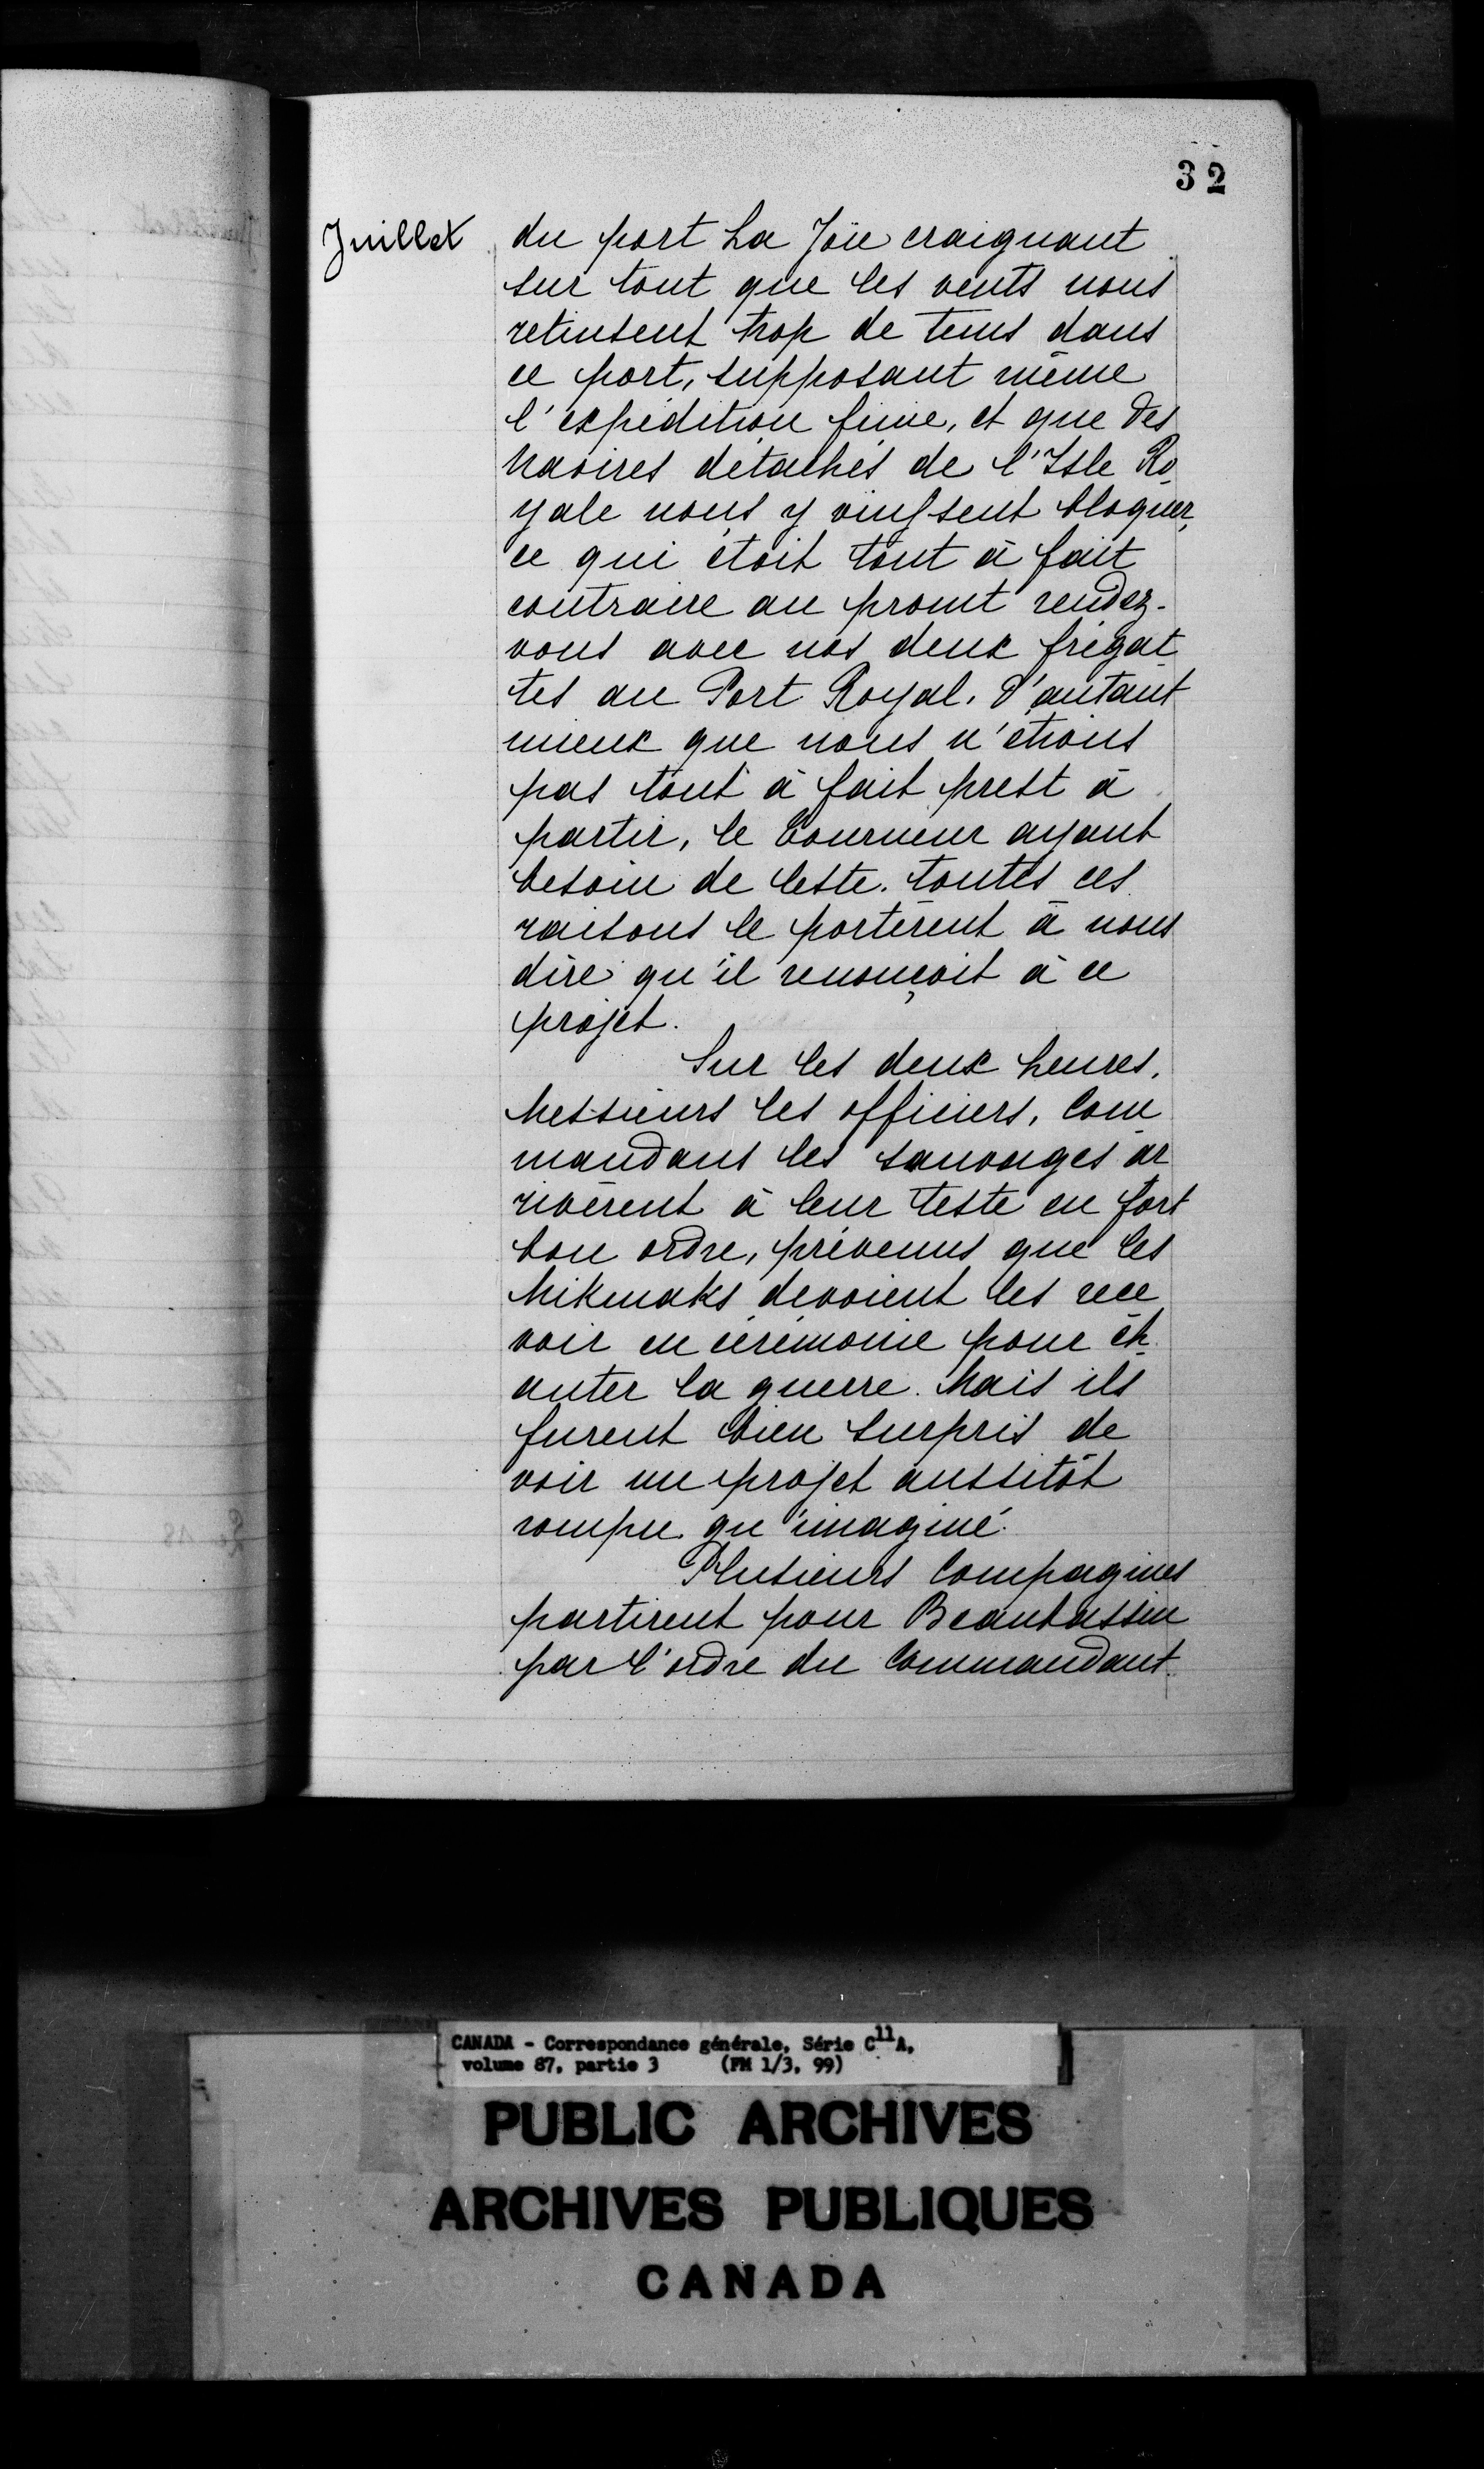 32
Juillet
du port La Joïe craignant
sur tout que les vents nous
retinsent trop de tems dans
ce port, supposant même
l'expédition finie, et que des
navires détachés de l'Isle Ro
yale nous y vinssent bloquer,
ce qui étoit tout à fait
contraire au promt rendez-
vous avec nos deux frégat
tes au Port Royal. d'autant
mieux que nous n'étions
pas tout à fait prest à
partir, le Tourneur ayant
besoin de leste. toutes ces
raisons le portèrent à nous
dire qu'il renonçoit à ce
projet.
Sur les deux heures,
Messieurs les officiers, Com
mandans les sauvages ar
rivèrent à leur teste en fort
bon ordre, prévenus que les
Mikmaks devoient les rece
voir en cérémonie pour ch
anter la guerre. Mais ils
furent bien surpris de
voir un projet aussitôt
rompu qu'imaginé.
Plusieurs Compagines
partirent pour Beaubassin
par l'ordre du Commandant
CANADA - Correspondance générale, Série C11A,
volume 87, partie 3 (FM 1/3, 99)
PUBLIC ARCHIVES
ARCHIVES PUBLIQUES
CANADA